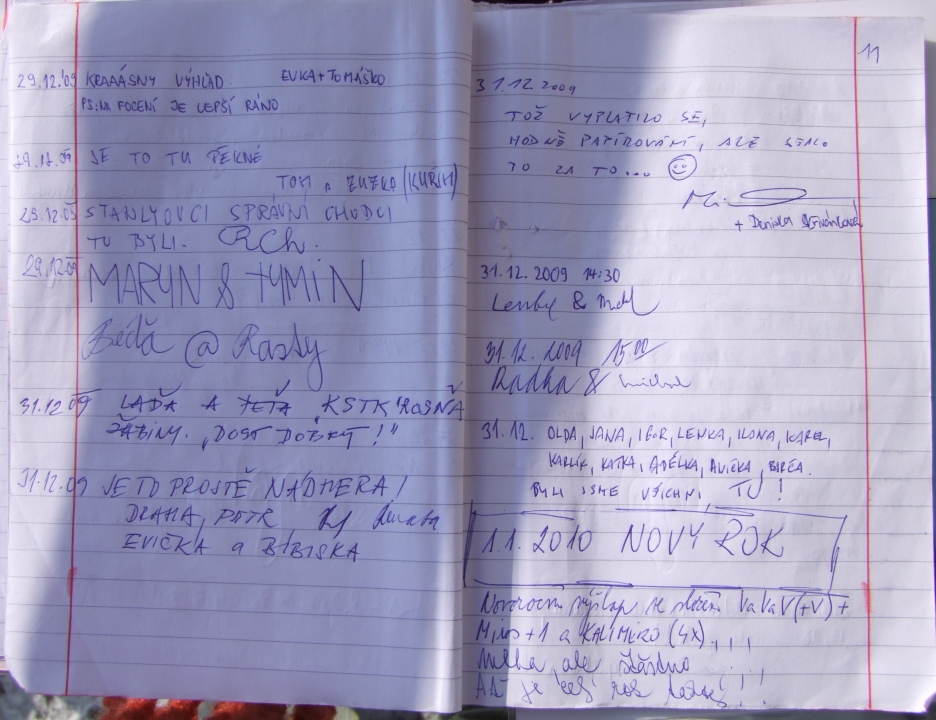 29.12.'09 KRAAÁSNÝ VÝHĽAD EVKA+TOMÁŠKO
PS: NA FOCENÍ JE LEPŠÍ RÁNO
JE TO TU PĚKNÉ
TOM a ZUZKA (KUŘIM)
29.12.09 STANLYOVCI SPRÁVNÍ CHODCI
TU BYLI. RCh.
29.12.09 MARYN & TYMIN
Béďa @ Rasty
31.12.09 LAĎA A TEŤA KSTK ROSNÁ
"DOST DOBRÝ!"
31.12.09 JE TO PROSTĚ NÁDHERA!
DRAHA, PETR, Renata
EVIČKA a BIBISKA
11
31.12.2009
TOŽ VYPLATILO SE,
HODNĚ PAPÍROVÁNÍ, ALE STÁLO
TO ZA TO...
+ Daniela
31.12.2009 14:30
31.12.2009 15:00
Radka &
31.12. OLDA, JANA, IGOR, LENKA, ILONA, KAREL,
KARLÍK, KATKA, ADÉLKA, ANIČKA, BIRČA.
BYLI JSME VŠICHNI TU!
1.1.2010 NOVÝ ROK
Novoroční výšlap se VaVaV(+V)+
Miros+1 a KALIMERO (4x)
mlha ale šťastno
Ať je celý rok